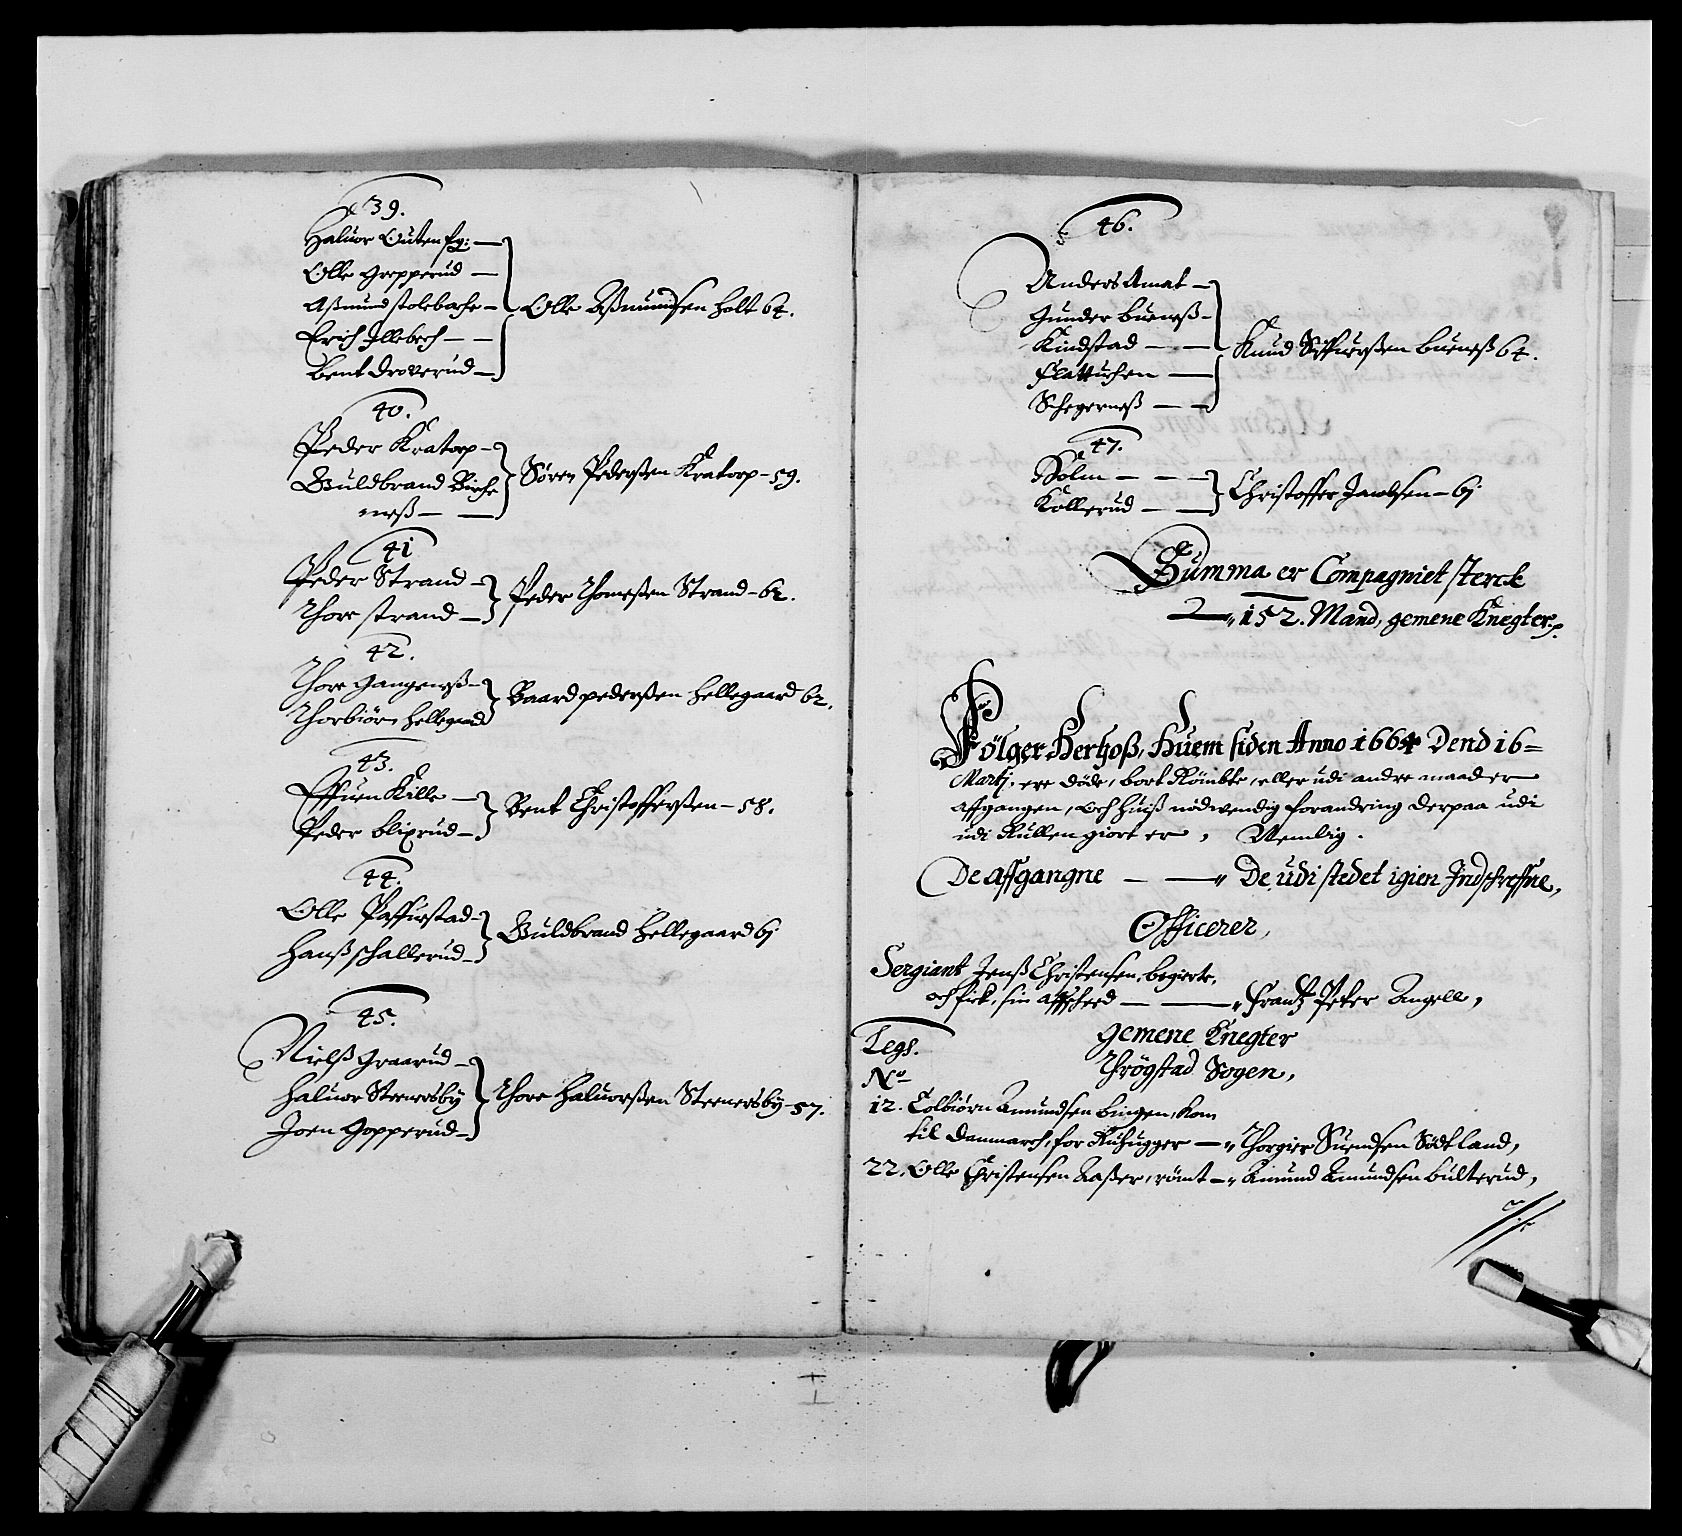 39.
Haluor Outen fg:
Olle Grepperud
Aßmund stolebache
Erich Illebech
Bent Droverud
Olle Aßmundsen Holt 64.
40.
Peder Kratorp
Guldbrand Birche
neß
Søren Pederßen Kratorp - 59.
41
Peder Strand
Thore strand
Peder Thomeßen Strand - 62.
42.
Thore Gangeneß
Thorbiørn Hellegaard
Baard pederßen Hellegaard 62.
43.
Effuen Kille
Peder blixrud
Bent Christofferßen - 58.
44.
Olle Paffuestad
Hanß schallerud
Guldbrand Hellegaard 6j
45.
Nielß Graarud
Haluor Steenersby
Joen Gopperud
Thore Haluorßen Steenersby - 57.
46.
Anders Amat
Gunder bueneß
Kindstad
Flattuchen
Schegerneß
Knud Siffuerßen bueneß 64.
47.
Solem
Kollerud
Christoffer Jacobsen - 6j
Summa er Compagniet sterck
152. Mand, gemene Knegter.
Fölger Herhoß, Huem siden Anno 1664 Dend 16=
Martj. ere döde, bort Römbte, eller udi andre maader
affgangen, och huiß nödwendig forandring derpaa udi
udi Rullen giort er, Nemblig.
De affgangne — De, udi stedet igien Indschreffne,
Officerer,
Sergiant Jenß Christensen, begierte,
och fick, sin affscheed — Frantz Peter Angell,
gemene Knegter
Thrögstad Sogen,
Legs.
No
12. Tolbiörn Amundsen bingen, kom
til Danmarch, for Ruhugger — Thorgier Suendsen Södtland,
22. Olle Christensen Aaßer, römt — Amund Amundsen bulterud,